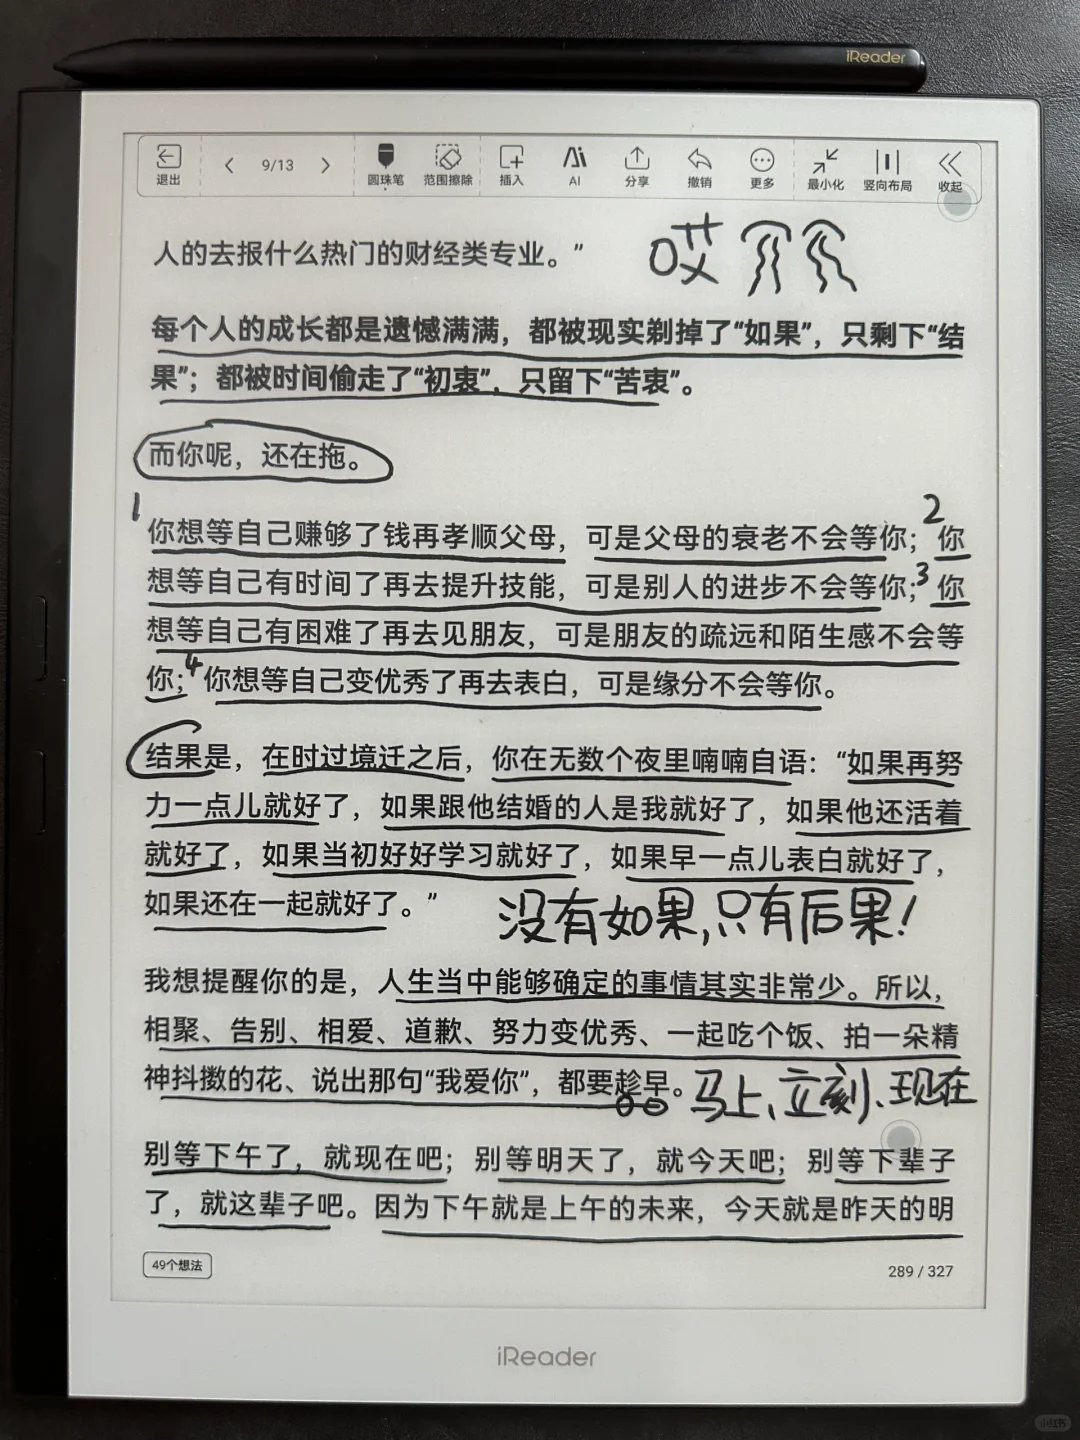 iReader
退出
9/13
圆珠笔
范围擦除
插入
AI
分享
撤销
更多
最小化
竖向布局
收起
人的去报什么热门的财经类专业。”
哎
每个人的成长都是遗憾满满，都被现实剃掉了“如果”，只剩下“结
果”；都被时间偷走了“初衷”，只留下“苦衷”。
而你呢，还在拖。
1
2
你想等自己赚够了钱再孝顺父母，可是父母的衰老不会等你；你
想等自己有时间了再去提升技能，可是别人的进步不会等你；3 你
想等自己有困难了再去见朋友，可是朋友的疏远和陌生感不会等
你；4 你想等自己变优秀了再去表白，可是缘分不会等你。
结果是，在时过境迁之后，你在无数个夜里喃喃自语：“如果再努
力一点儿就好了，如果跟他结婚的人是我就好了，如果他还活着
就好了，如果当初好好学习就好了，如果早一点儿表白就好了，
如果还在一起就好了。”
没有如果,只有后果!
我想提醒你的是，人生当中能够确定的事情其实非常少。所以，
相聚、告别、相爱、道歉、努力变优秀、一起吃个饭、拍一朵精
神抖擞的花、说出那句“我爱你”，都要趁早。
马上、立刻、现在
别等下午了，就现在吧；别等明天了，就今天吧；别等下辈子
了，就这辈子吧。因为下午就是上午的未来，今天就是昨天的明
49个想法
289 / 327
iReader
小红书